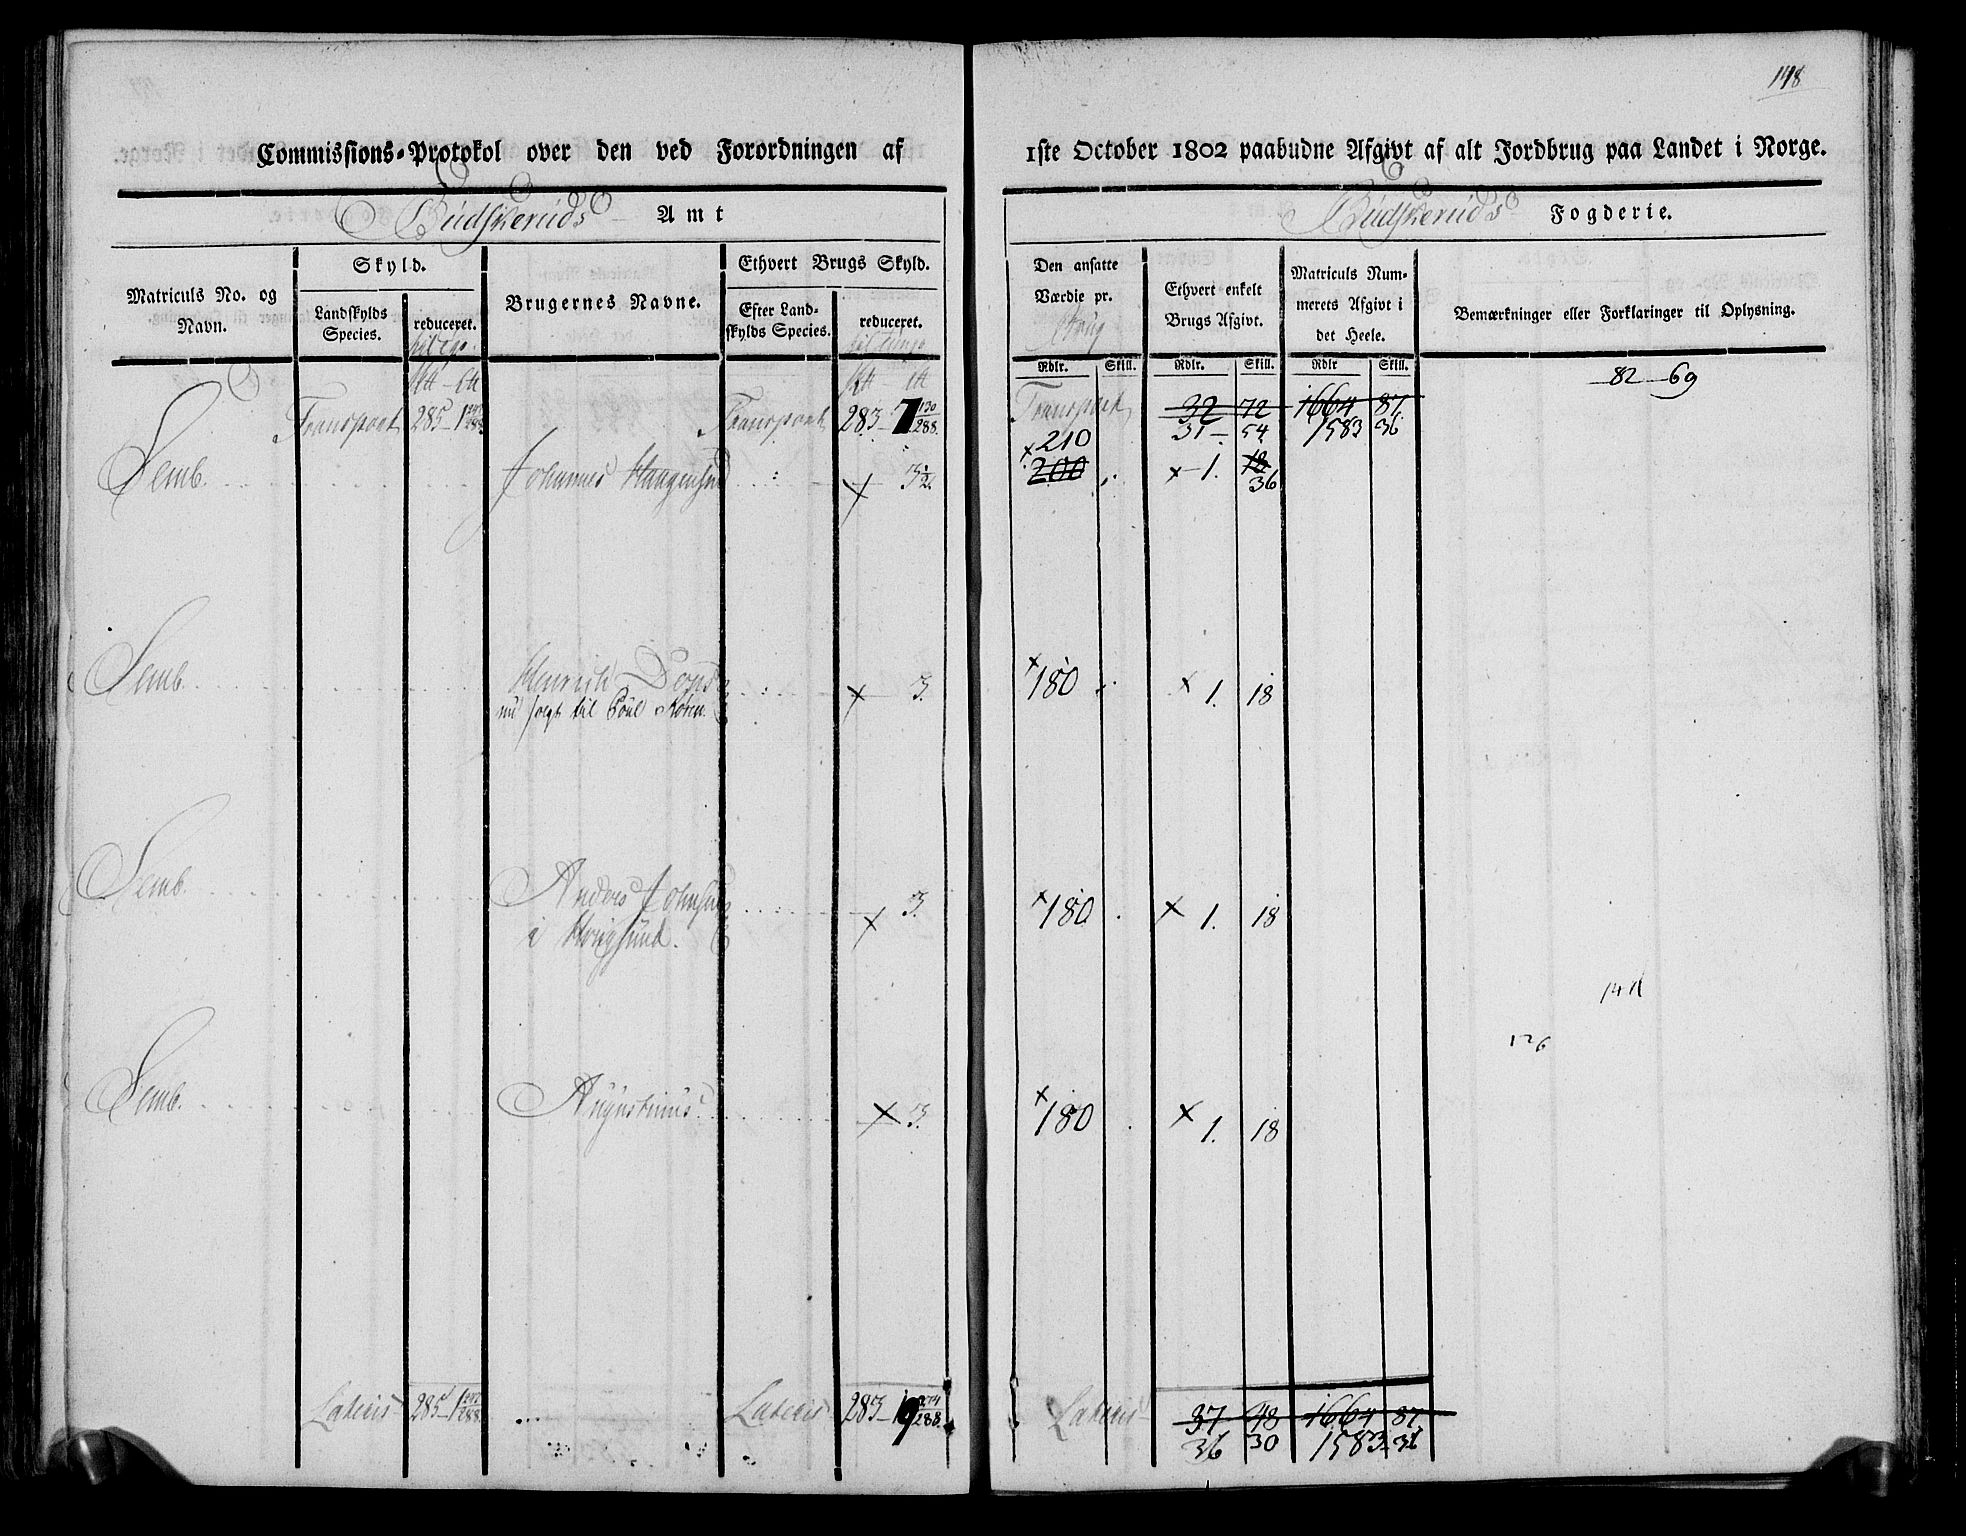 148
Commissions-Protokol over den ved Forordningen af 1ste October 1802 paabudne Afgivt af alt Jordbrug paa Landet i Norge.
Budskeruds Amt
Budskeruds Fogderie.
Matriculs No. og Navn.
Skyld.
Landskylds Species.
reduceret.
Brugernes Navne.
Ethvert Brugs Skyld.
Efter Landskylds Species.
reduceret.
Den ansatte Værdie pr. Brug
Ethvert enkelt Brugs Afgivt.
Matriculs Nummerets Afgivt i det Heele.
Bemærkninger eller Forklaringer til Oplysning.
Rdlr. Skill. Rdlr. Skill. Rdlr Skill.
82 - 69
Transport 285 - 1 Transport 283 - 7 130/288 Transport 32 72 1664 87
31 - 54 1583 36
Semb. Johannes Haagensen 3 1/2. × 210 × 1. 18
200 36
Semb. Henrich × 3. × 180 × 1. 18
nu solgt til Poul
Semb. Anders Johnsen × 3. × 180 × 1. 18
i Hougsund.
141
126
Semb. Augustinus × 3. × 180 × 1. 18
Lateris 285 - 1 Lateris 283 - 19 274/288 Lateris 37 48 1664 87
36 30 1583 36